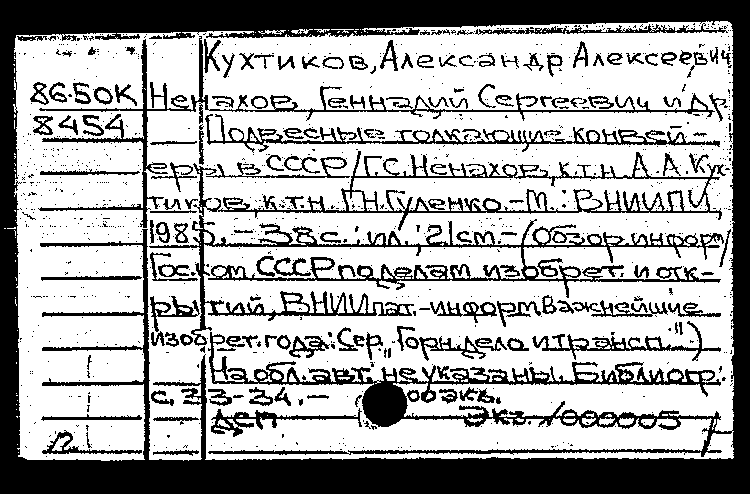 Кухтиков, Александр Алексеевич
86-50К Ненахов, Геннадий Сергеевич и др
8454 Подвесные толкающие конвей-
еры в СССР/Г.С. Ненахов, к.т.н. А.А. Кух-
тиков, к.т.н. Г.Н. Гуленко.-М.: ВНИИПИ,
1985.-38 с.: ил.; 21 см.-(Обзор. информ/
Гос. ком. СССР по делам изобрет. и отк-
рытий, ВНИИпат.-информ Важнейшие
изобрет. года: Сер. "Горн. дело и трансп.")
На обл. авт. не указаны. Библиогр.:
с. 33-34.- 00 экз.
ДСП Экз. №000005